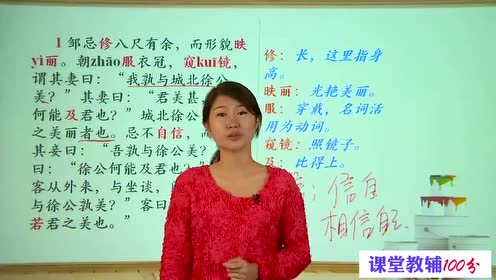 1 邹忌修八尺有余，而形貌昳
yì丽。朝zhāo服衣冠，窥kuī镜，
谓其妻曰：“我孰与城北徐公
美？”其妻曰：“君美甚
何能及君也？”城北徐公
之美丽者也。忌不自信，而
其妾曰：“吾孰与徐公美？
“徐公何能及君也？”
客从外来，与坐谈，
与徐公孰美？”客曰
若君之美也。”
修：长，这里指身
高。
昳丽：光艳美丽。
服：穿戴，名词活
用为动词。
窥镜：照镜子。
及：比得上。
信自
相信自己
课堂教辅100分